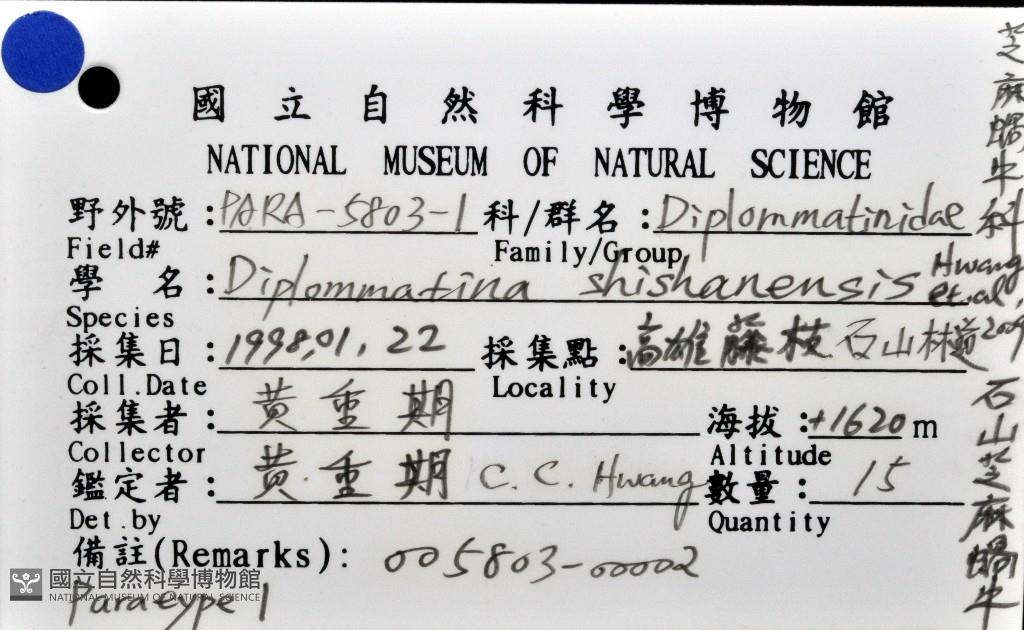 國立自然科學博物館
NATIONAL MUSEUM OF NATURAL SCIENCE
野外號:PARA-5803-1 科/群名:Diplommatinidae
Field# Family/Group
學 名:Diplommatina shishanensis Hwang et.al, 2009
Species
採集日:1998,01,22 採集點:高雄藤枝石山林道
Coll.Date Locality
採集者:黄重期 海拔:+1620 m
Collector Altitude
鑑定者:黄重期 C. C. Hwang 數量:15
Det.by Quantity
備註(Remarks): 005803-00002
Paratype 1
芝麻蝸牛科
石山芝麻蝸牛
國立自然科學博物館
NATIONAL MUSEUM OF NATURAL SCIENCE